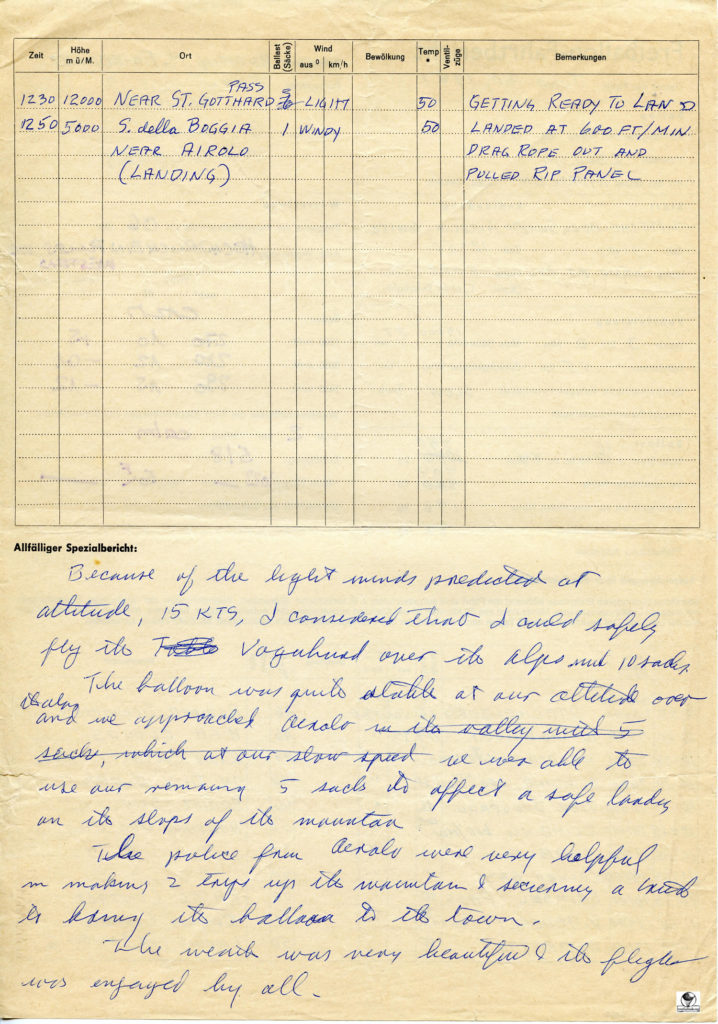 Zeit Höhe m ü/M. Ort Ballast (Säcke) Wind aus ° km/h Bewölkung Temp ° Ventilzüge Bemerkungen
PASS
1230 12000 NEAR ST. GOTTHARD 5 LIGHT 50 GETTING READY TO LAND
1250 5000 S. della BOGGIA 1 WINDY 50 LANDED AT 600 FT/MIN.
NEAR AIROLO DRAG ROPE OUT AND
(LANDING) PULLED RIP PANEL
Allfälliger Spezialbericht:
Because of the light winds predicted at
altitude, 15 KTS, I considered that I could safely
fly the Vagabund over the Alps and 10 sacks.
The balloon was quite stable at our altitude over
the alps
and we approached Aerolo in the valley with 5
sacks, which at our slow speed we were able to
use our remaing 5 sacks to affect a safe landing
on the slops of the mountain
The police from Aerolo were very helpful
in making 2 trips up the mountain & securing a
to bring the balloon to the town.
The weath was very beautiful & the flight
was enjoyed by all.